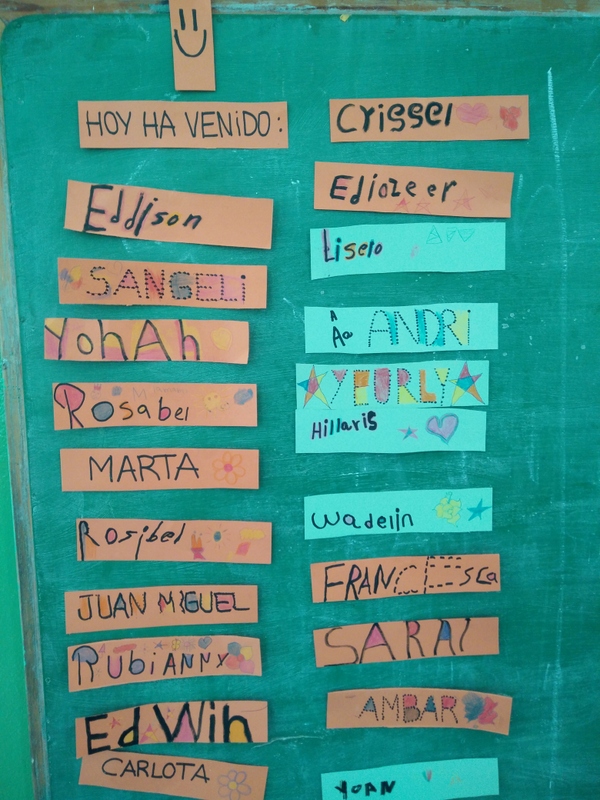 HOY HA VENIDO:
Eddison
SANGELi
YohAh
Rosabel
MARTA
Rosibel
JUAN MIGUEL
RubiANNY
EdWin
CARLOTA
Crissel
Ediozeer
Liselo
A
Aa ANDRi
YEURLY
Hillaris
Wadelin
FRANCHEsca
SARAI
AMBAR
YOAN